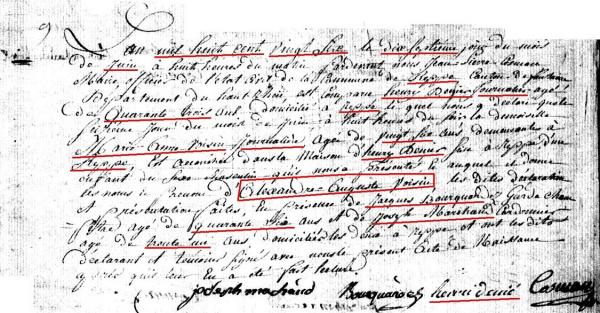 9
L'an mil huit cent vingt six le dix septieme jour du mois
de Juin a huit heures du matin Pardevant nous Jean Pierre
Maire officier de l'etat civil de la Commune de Reppe Canton de
Departement du haut Rhin, est comparu henry Denis Journalier agé
des Quarante trois ans domicilié a Reppe lequel nous a declaré que
jour du mois de Juin a huit heures du soir la demoiselle
Marie Anne Voisin Journaliere Agee de vingt six ans demeurante a
Reppe est accouchée dans la Maison d'henry Denis sise a Reppe d'un
enfant du Sexe Masculin qu'il nous a Présenté et auquel il donne
les noms et Prenoms d'Alexandre Auguste Voisin les dites declaration
et présentation faites, En presence de Jacques Bourquard Garde Cham
pêtre agé de quarante six ans et de Joseph Marchand Cordonnier
agé de trente un ans, domiciliés les deux a Reppe et ont les dits
declarant et temoins signé avec nous le présent Acte de Naissance
après qu'il leur en a été fait lecture
joseph marchand Bourquard henri denis